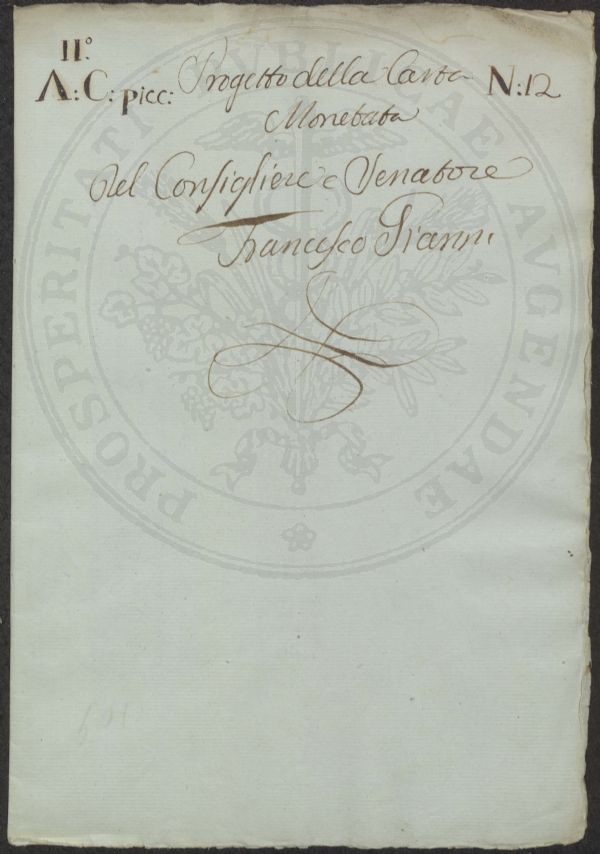 II.º
A: C: picc: Progetto della Carta N: 12
Monetata
Del Consigliere e Senatore
Francesco Gianni
PROSPERITATI PVBLICAE AVGENDAE